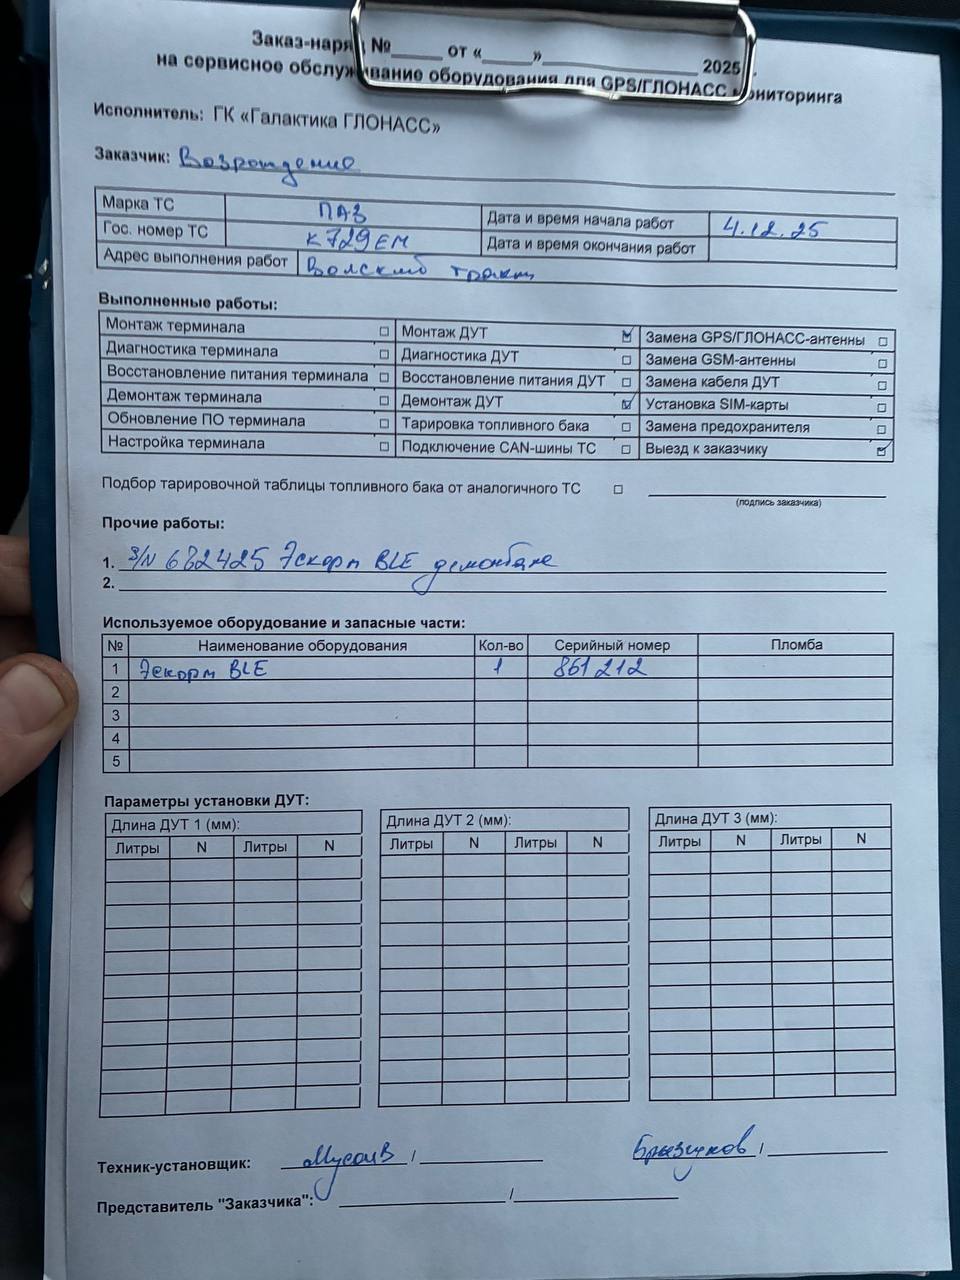 Заказ-наряд №_____ от «_____»__________________ 2025 г.
на сервисное обслуживание оборудования для GPS/ГЛОНАСС мониторинга
Исполнитель: ГК «Галактика ГЛОНАСС»
Заказчик: Возрождение
Марка ТС ПАЗ Дата и время начала работ 4.12.25
Гос. номер ТС К729ЕМ Дата и время окончания работ
Адрес выполнения работ Волский тракт
Выполненные работы:
Монтаж терминала ☐ Монтаж ДУТ ☑ Замена GPS/ГЛОНАСС-антенны ☐
Диагностика терминала ☐ Диагностика ДУТ ☐ Замена GSM-антенны ☐
Восстановление питания терминала ☐ Восстановление питания ДУТ ☐ Замена кабеля ДУТ ☐
Демонтаж терминала ☐ Демонтаж ДУТ ☑ Установка SIM-карты ☐
Обновление ПО терминала ☐ Тарировка топливного бака ☐ Замена предохранителя ☐
Настройка терминала ☐ Подключение CAN-шины ТС ☐ Выезд к заказчику ☑
Подбор тарировочной таблицы топливного бака от аналогичного ТС ☐
(подпись заказчика)
Прочие работы:
1. S/N 632425 Эскорт BLE демонтаж
2.
Используемое оборудование и запасные части:
№ Наименование оборудования Кол-во Серийный номер Пломба
1 Эскорт BLE 1 861212
2
3
4
5
Параметры установки ДУТ:
Длина ДУТ 1 (мм): Длина ДУТ 2 (мм): Длина ДУТ 3 (мм):
Литры N Литры N Литры N Литры N Литры N Литры N
Техник-установщик: / Брызгунов /
Представитель "Заказчика": /